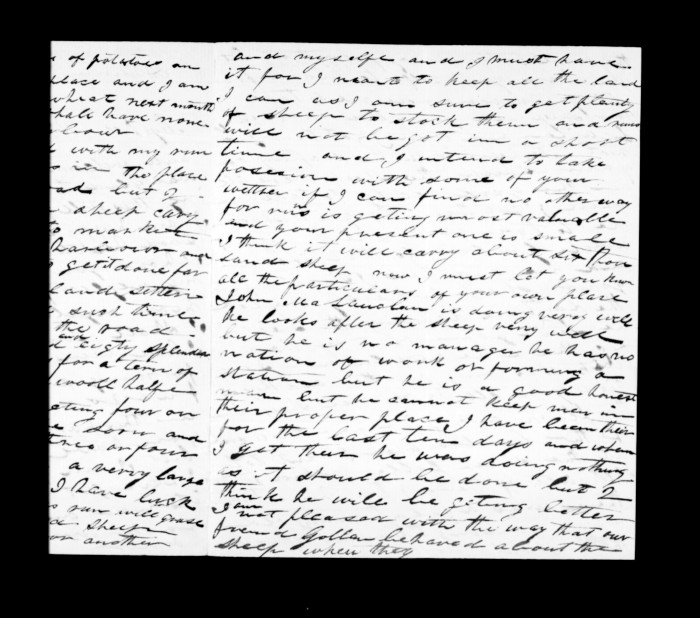 of potatoes on
place and I am
what next month
shall have none
with my run
in the place
but I
sheep carry
to market
get it done for
land setter
such time
the road
and eigty splended
for a term of
wooll half
four on
soon and
or four
a verry large
I have luck
run will grase
sheep
or another
and myselfe and I must have
it for I want to keep all the land
I can as I am sure to get planty
of sheep to stock them and runs
will not be got inn a short
time and I intend to take
posesion with some of your
wether if I can find no other way
for runs is geting most valuable
and your present one is small
I think it will carry about six thou
sand sheep now I must let you know
all the particulars of your own place
John is doing very well
he looks after the sheep very well
but he is no manager he has no
nation of work or forming a
station but he is a good honest
man but he cannot keep men in
their proper place I have been their
for the last ten days and when
I get ther he was doing nothing
as it should be done but I
think he will be geting better
I am not pleased with the way that our
frend Gollan behaved about the
sheep when they